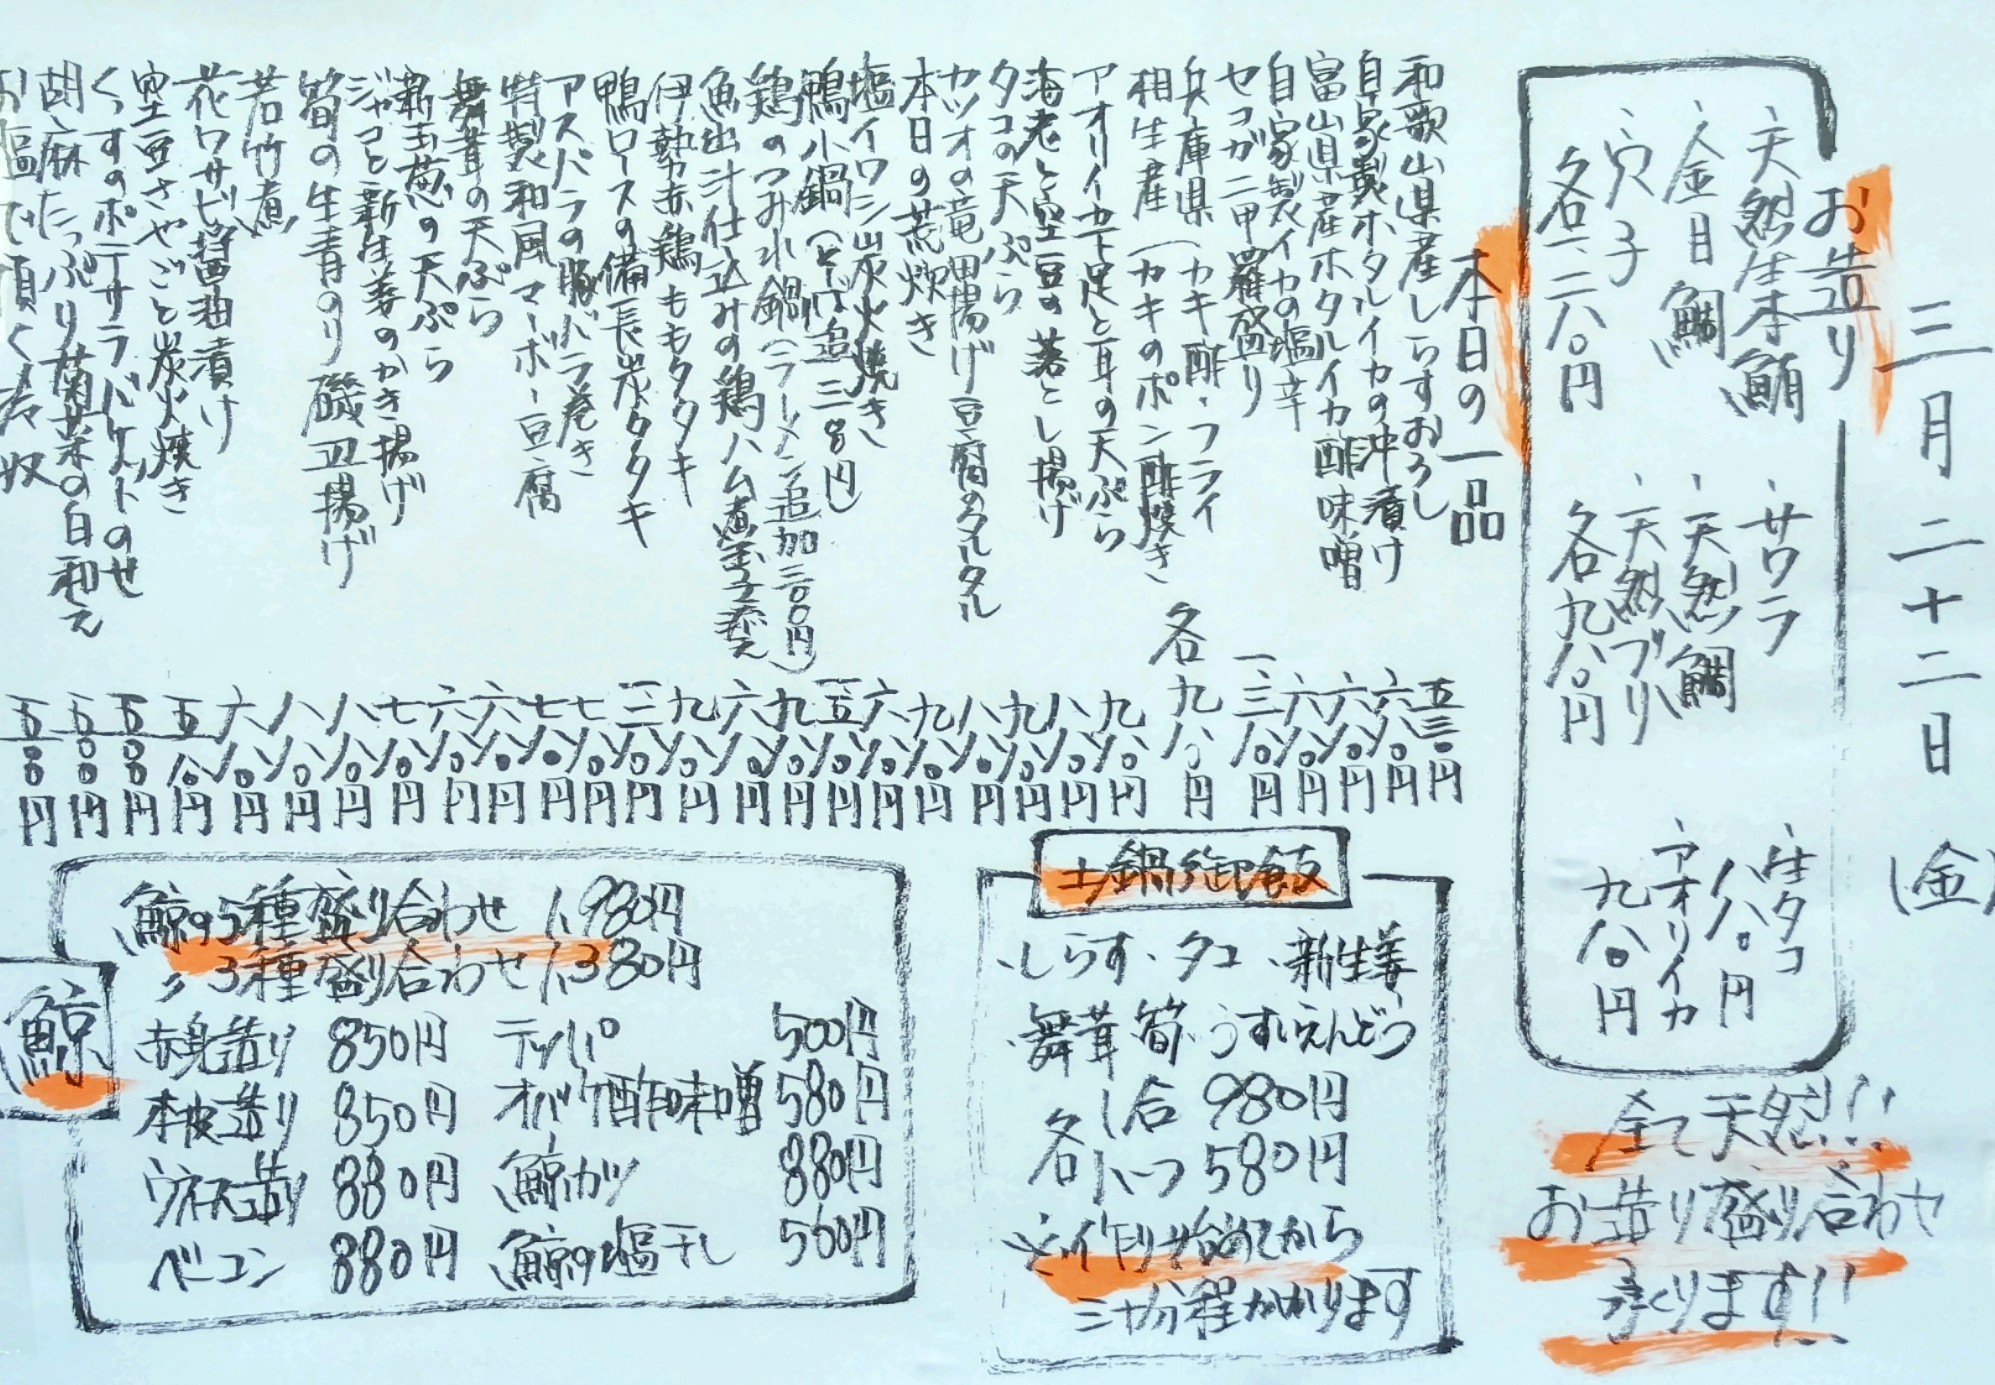 三月二十二日(金)
お造り
・天然生本鮪
・金目鯛
・穴子
各一二八〇円
・サワラ
・天然鯛
・天然ブリ
各九八〇円
・生タコ
八八〇円
・アオリイカ
九八〇円
全て天然!!
お造り盛り合わせ
承ります!!
本日の一品
和歌山県産しらすおろし 五三〇円
自家製ホタルイカの沖漬け 六八〇円
富山県産ホタルイカ酢味噌 六八〇円
自家製イカの塩辛 六八〇円
セコガニ甲羅盛り 一三八〇円
兵庫県(カキ酢・フライ
相生産(カキのポン酢焼き 各九八〇円
アオリイカ下足と耳の天ぷら 九八〇円
海老と空豆の落とし揚げ 八八〇円
タコの天ぷら 九八〇円
カツオの竜田揚げ豆腐のタルタル 八八〇円
本日の荒炊き 九八〇円
塩イワシ炭火焼き 六八〇円
鴨小鍋
鶏のつみれ鍋(ラーメン追加三〇〇円) 九八〇円
魚出汁仕込みの鶏ハム煮玉子添え 六八〇円
伊勢赤鶏ももタタキ 九八〇円
鴨ロースの備長炭タタキ
アスパラの豚バラ巻き 七八〇円
特製和風マーボー豆腐 七八〇円
舞茸の天ぷら 六八〇円
新玉葱の天ぷら 六八〇円
ジャコと新生姜のかき揚げ 七八〇円
筍の生青のり磯辺揚げ 八八〇円
若竹煮 八八〇円
花ワサビ醤油漬け 六八〇円
空豆さやごと炭火焼き 五八〇円
くんすのポテサラバケットのせ 五〇〇円
胡麻たっぷり菊菜の白和え 五〇〇円
お塩で頂く
奴 五〇〇円
土鍋御飯
・しらす・タコ・新生姜
・舞茸・筍・うすいえんどう
各一合 980円
各ハーフ 580円
※作り始めてから
三十分程かかります
鯨
鯨の5種盛り合わせ 1,980円
〃 3種盛り合わせ 1,380円
赤身造り 850円
本皮造り 850円
ウネス造り 880円
ベーコン 880円
テッパ 500円
オバケ酢味噌 580円
鯨カツ 880円
鯨の塩干し 500円